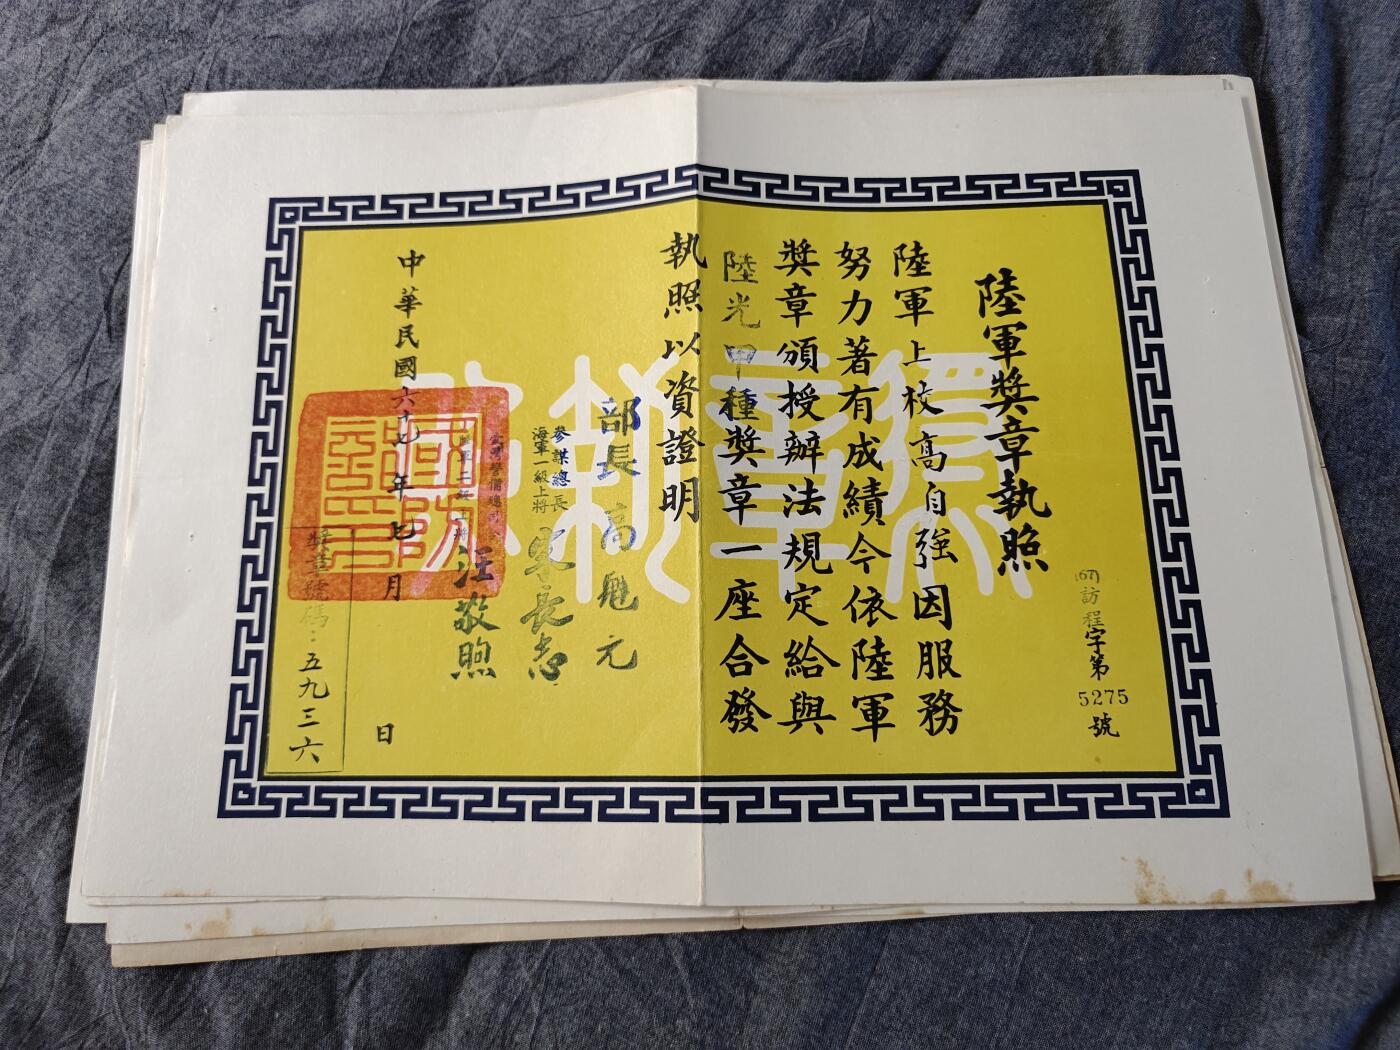 陸軍獎章執照
(67)訪程字第5275號
陸軍上校高自強因服務
努力著有成績今依陸軍
獎章頒授辦法規定給與
陸光甲種獎章一座合發
執照以資證明
部長高魁元
參謀總長
海軍一級上將
宋長志
汪敬煦
中華民國六十七年七月 日
獎章號碼：五九三六